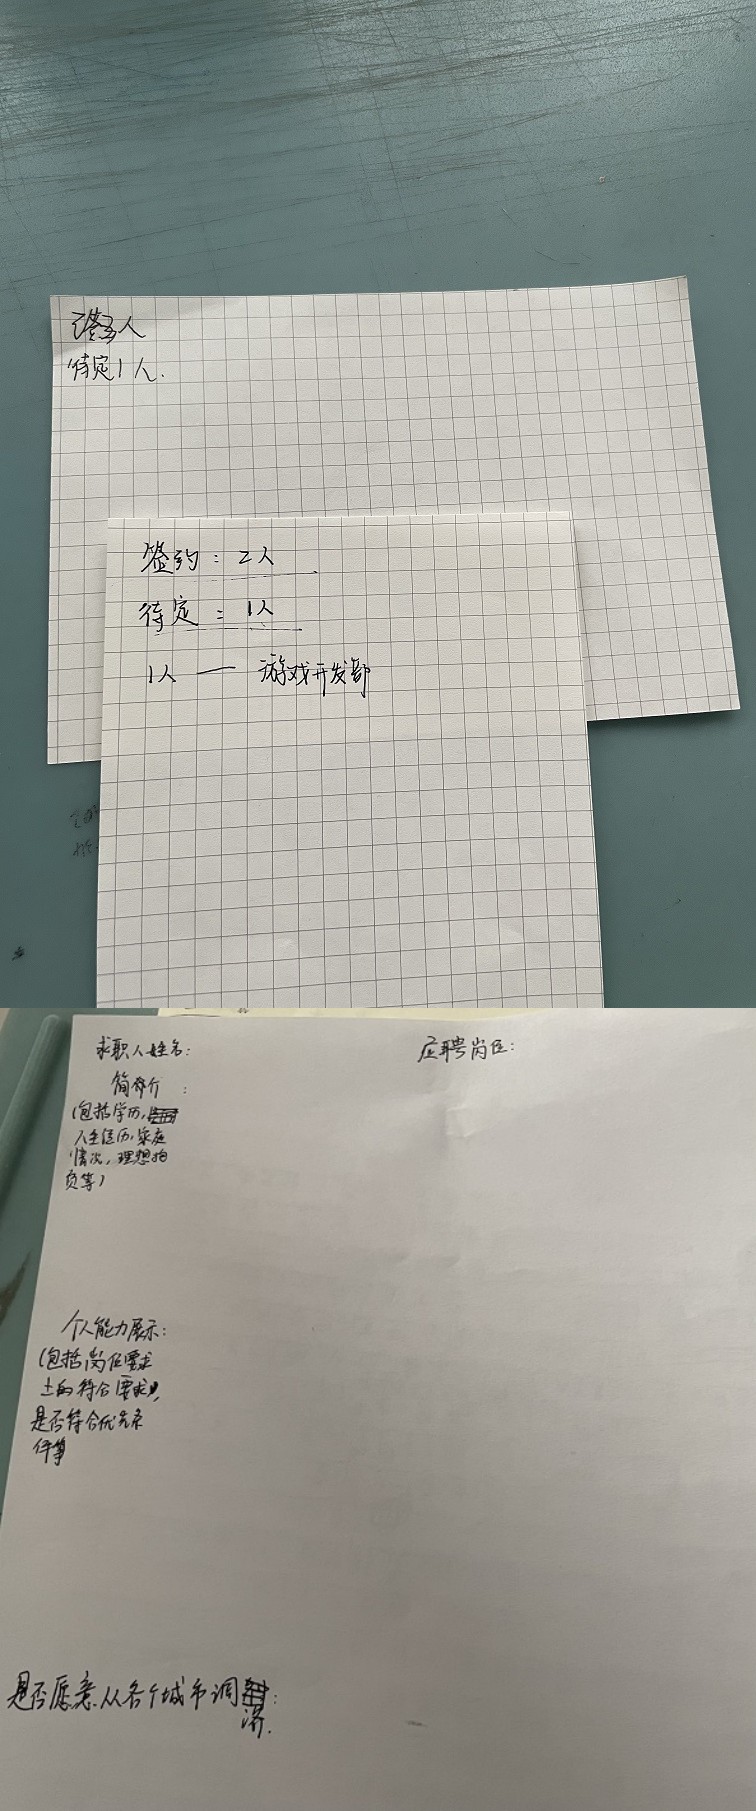 人
待定1人.
签约：2人
待定：1人
1人 — 游戏开发部
求职人姓名：
应聘岗位：
简介：
（包括学历，
人生经历，家庭
情况，理想抱
负等）
个人能力展示：
（包括岗位要求
上的符合要求，
是否符合优先条
件等
是否愿意从各个城市调
济.